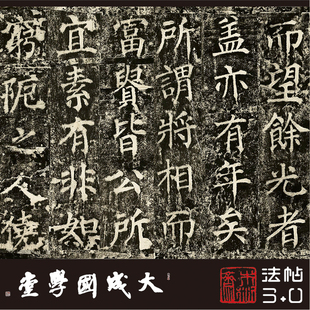 而望餘光者
盖亦有年矣
所謂將相而
富貴皆公所
宜素有非如
窮阨之人僥
大成國學堂
法帖
3.0